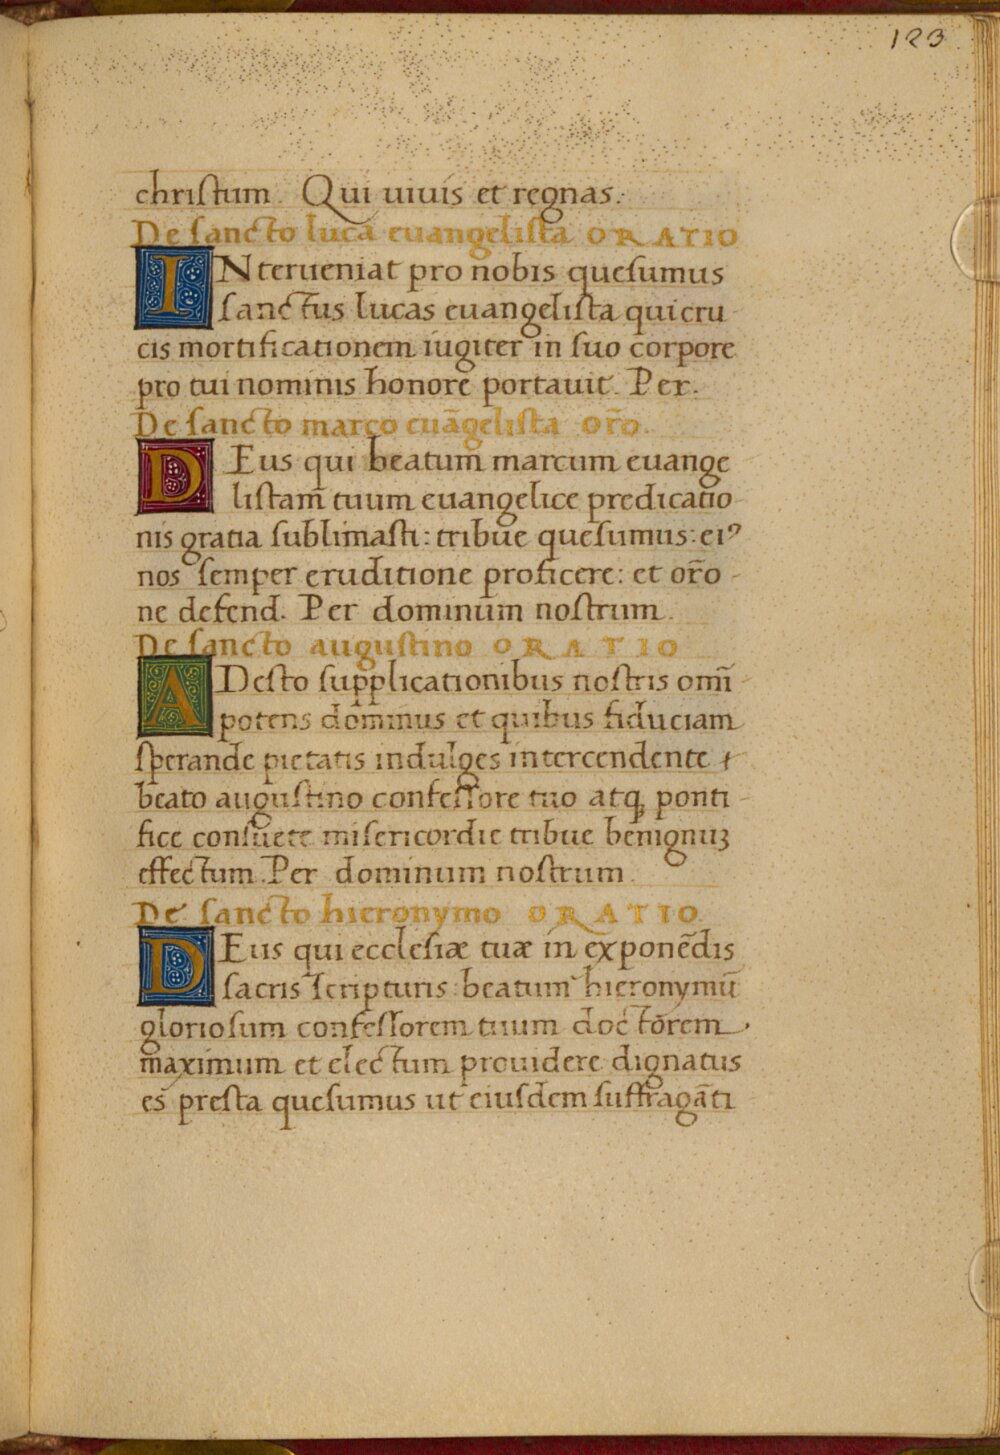 123
christum. Qui uiuis et regnas.
De sancto luca euangelista ORATIO
INterueniat pro nobis quesumus
sanctus lucas euangelista qui cru
cis mortificationem iugiter in suo corpore
pro tui nominis honore portauit. Per.
De sancto marco euāgelista or̄o.
DEus qui beatum marcum euange
listam tuum euangelice predicatio
nis gratia sublimasti: tribue quesumus: eiꝰ
nos semper eruditione proficere: et or̄o
ne defend. Per dominum nostrum.
De sancto augustino ORATIO
ADesto supplicationibus nostris om̄i
potens dominus et quibus fiduciam
sperande pietatis indulges intercendente
beato augustino confessore tuo atq; ponti
fice consuete misericordie tribue benignuꝫ
effectum. Per dominum nostrum.
De sancto hieronymo ORATIO
DEus qui ecclesiæ tuæ in exponēdis
sacris scripturis: beatum hieronymū
gloriosum confessorem tuum doctōrem
maximum et electum prouidere dignatus
es presta quesumus ut eiusdem suffragāti